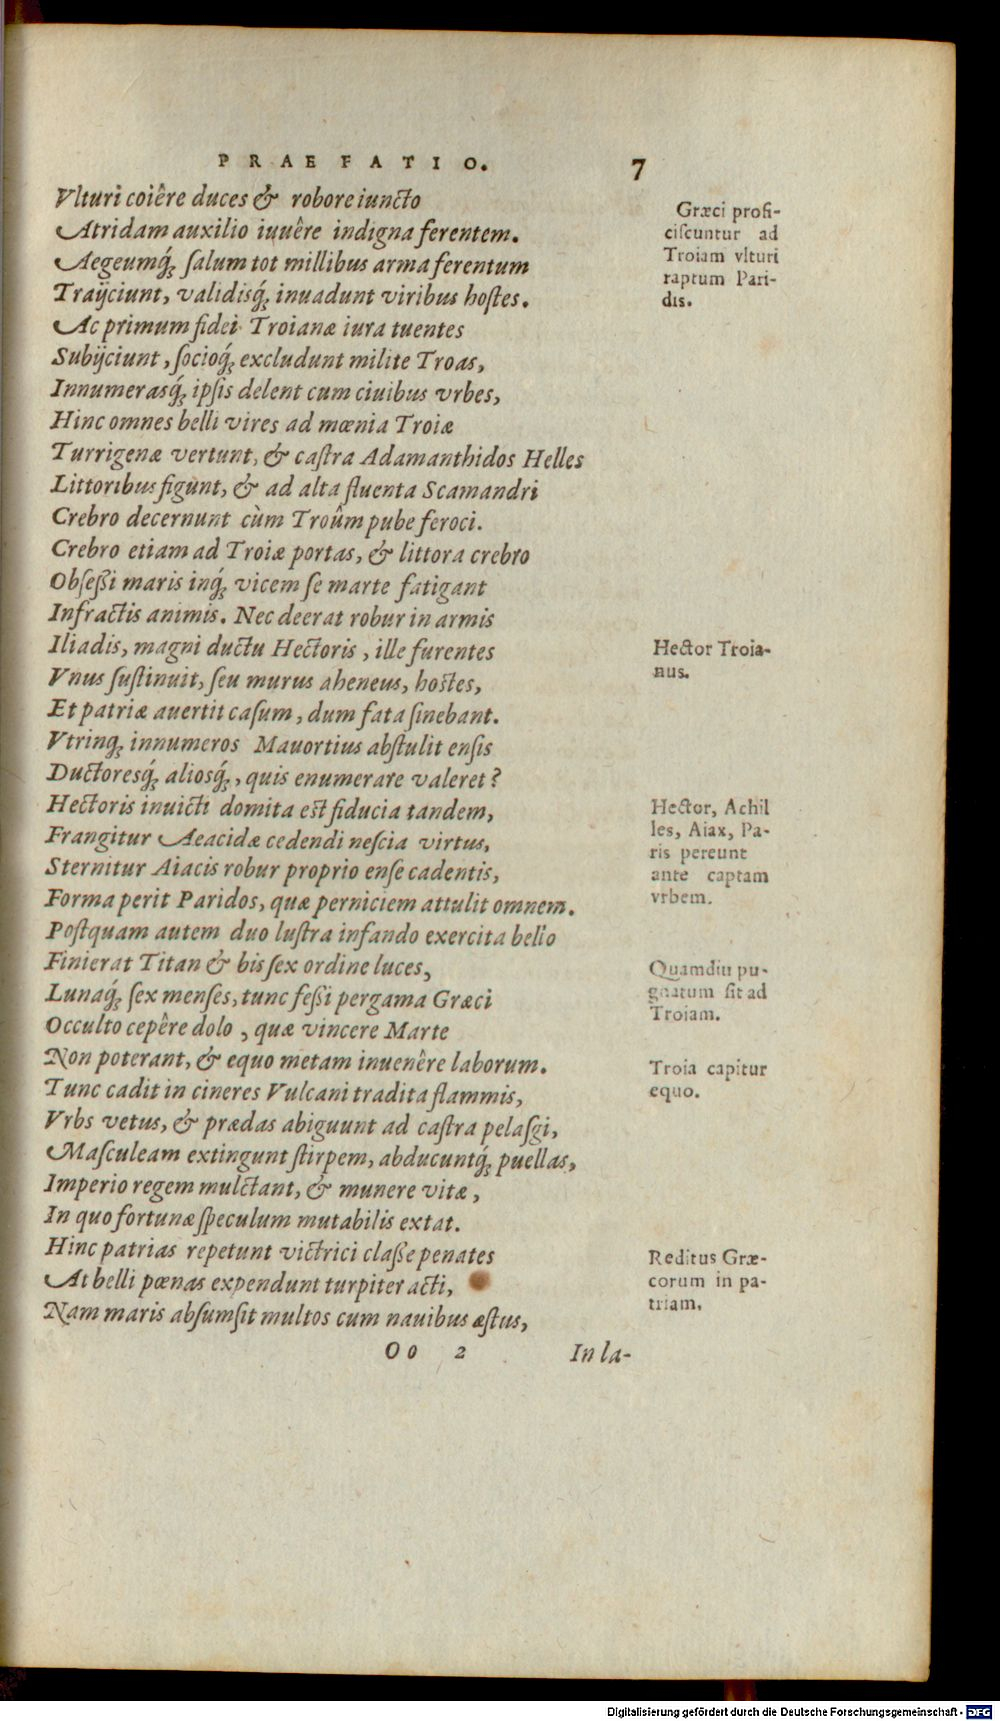 PRAEFATIO. 7
Vlturi coiêre duces & robore iuncto
Atridam auxilio iuuêre indigna ferentem.
Aegeumq́; salum tot millibus arma ferentum
Traijciunt, validisq́; inuadunt viribus hostes.
Ac primum fidei Troianæ iura tuentes
Subijciunt, socioq́; excludunt milite Troas,
Innumerasq́; ipsis delent cum ciuibus vrbes,
Hinc omnes belli vires ad mœnia Troiæ
Turrigenæ vertunt, & castra Adamanthidos Helles
Littoribus figunt, & ad alta fluenta Scamandri
Crebro decernunt cùm Troûm pube feroci.
Crebro etiam ad Troiæ portas, & littora crebro
Obseßi maris inq́; vicem se marte fatigant
Infractis animis. Nec deerat robur in armis
Iliadis, magni ductu Hectoris, ille furentes
Vnus sustinuit, seu murus aheneus, hostes,
Et patriæ auertit casum, dum fata sinebant.
Vtrinq; innumeros Mauortius abstulit ensis
Ductoresq́; aliosq́;, quis enumerare valeret?
Hectoris inuicti domita est fiducia tandem,
Frangitur Aeacidæ cedendi nescia virtus,
Sternitur Aiacis robur proprio ense cadentis,
Forma perit Paridos, quæ perniciem attulit omnem.
Postquam autem duo lustra infando exercita bello
Finierat Titan & bis sex ordine luces,
Lunaq́; sex menses, tunc feßi pergama Græci
Occulto cepêre dolo, quæ vincere Marte
Non poterant, & equo metam inuenêre laborum.
Tunc cadit in cineres Vulcani tradita flammis,
Vrbs vetus, & prædas abiguunt ad castra pelasgi,
Masculeam extingunt stirpem, abducuntq́; puellas,
Imperio regem mulctant, & munere vitæ,
In quo fortunæ speculum mutabilis extat.
Hinc patrias repetunt victrici classe penates
At belli pœnas expendunt turpiter acti,
Nam maris absumsit multos cum nauibus æstus,
Oo 2 In la-
Græci profi-
ciscuntur ad
Troiam vlturi
raptum Pari-
dis.
Hector Troia-
nus.
Hector, Achil
les, Aiax, Pa-
ris pereunt
ante captam
vrbem.
Quamdiu pu-
gnatum sit ad
Troiam.
Troia capitur
equo.
Reditus Græ-
corum in pa-
triam.
Digitalisierung gefördert durch die Deutsche Forschungsgemeinschaft - DFG